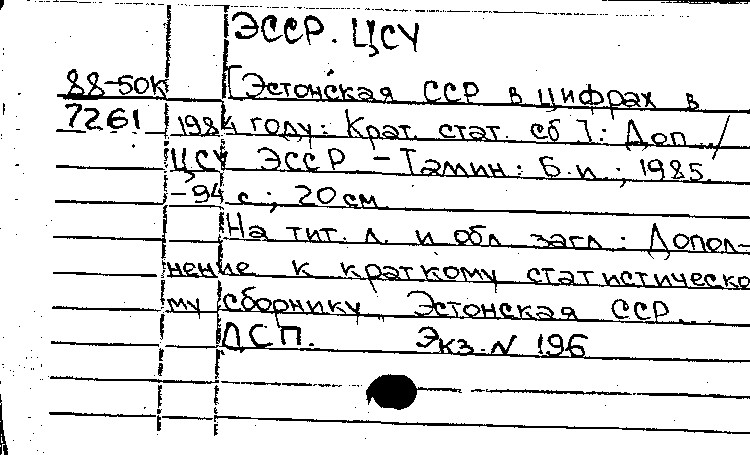 ЭССР. ЦСУ
88-50К [Эстонская ССР в цифрах в
7261 1984 году: Крат. стат. сб.]: Доп.../
ЦСУ ЭССР – Таллин: Б.и.; 1985.
–94 с; 20 см
На тит. л. и обл загл: Допол-
нение к краткому статистическо
му сборнику Эстонская ССР...
ДСП. Экз. N 196